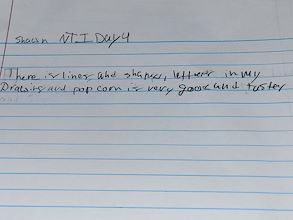 Shaun NTI Day 4
There is lines and shapes, letters in my
and popcorn is very good and